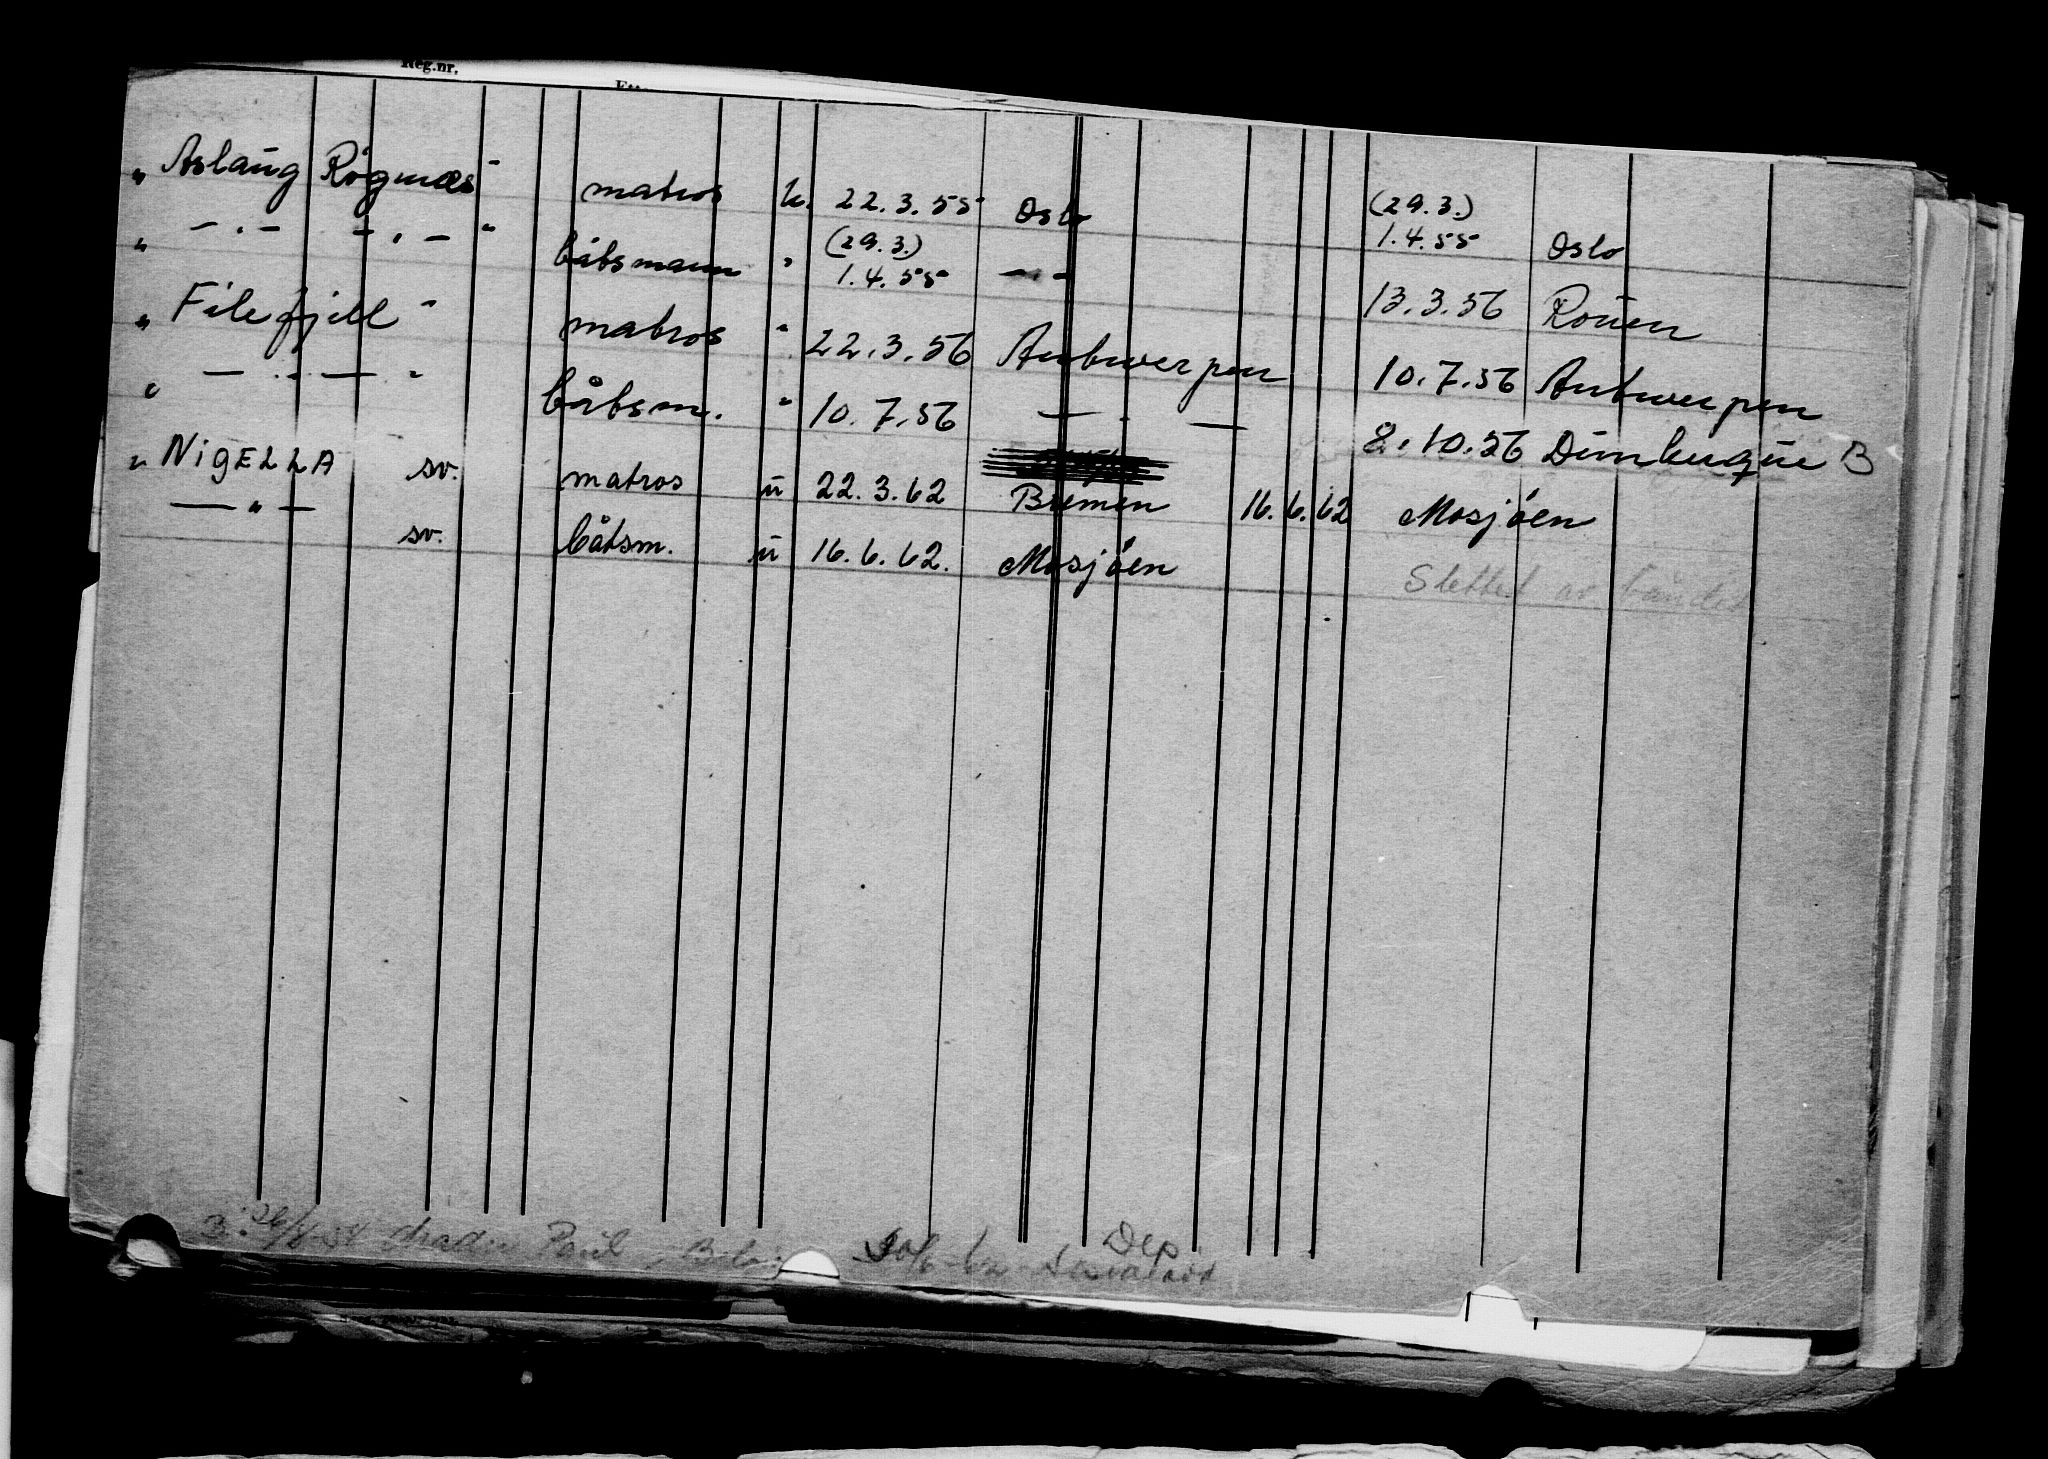 Reg.nr.
„ Aslaug Rögnæs " matros u. 22.3.55 Oslo (29.3.) 1.4.55 Oslo
„ — . — — . — " båtsmann " (29.3.) 1.4.55 — " — 13.3.56 Rouen
„ Filefjell " matros " 22.3.56 Antwerpen 10.7.56 Antwerpen
„ — . . — . " båtsm. " 10.7.56 — . — 8.10.56 Dunkerque B
„ NigELLA sv. matros u 22.3.62 Bremen 16.6.62 Mosjöen
— " — sv. båtsm. u 16.6.62. Mosjöen Slettet av
Paul Dep